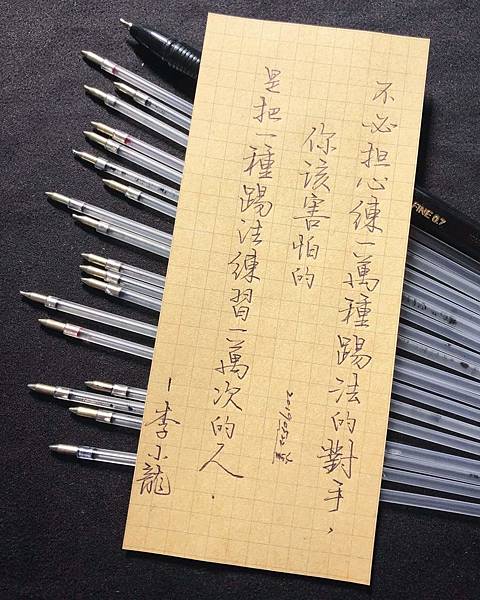 不必担心練一萬種踢法的對手，
你該害怕的
是把一種踢法練習一萬次的人．
－李小龍
FINE 0.7